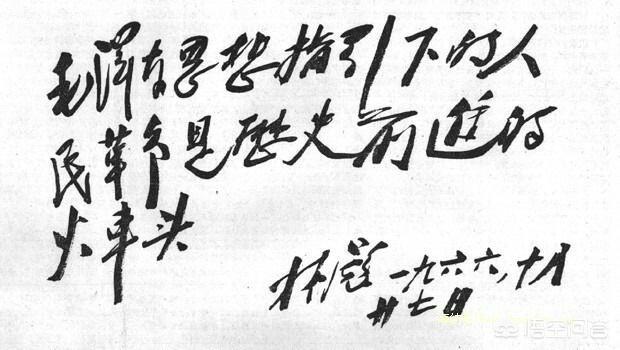 毛泽东思想指引下的人
民革命是歷史前進的
火車头
林彪 一九六六、十月
廿七日
悟空问答